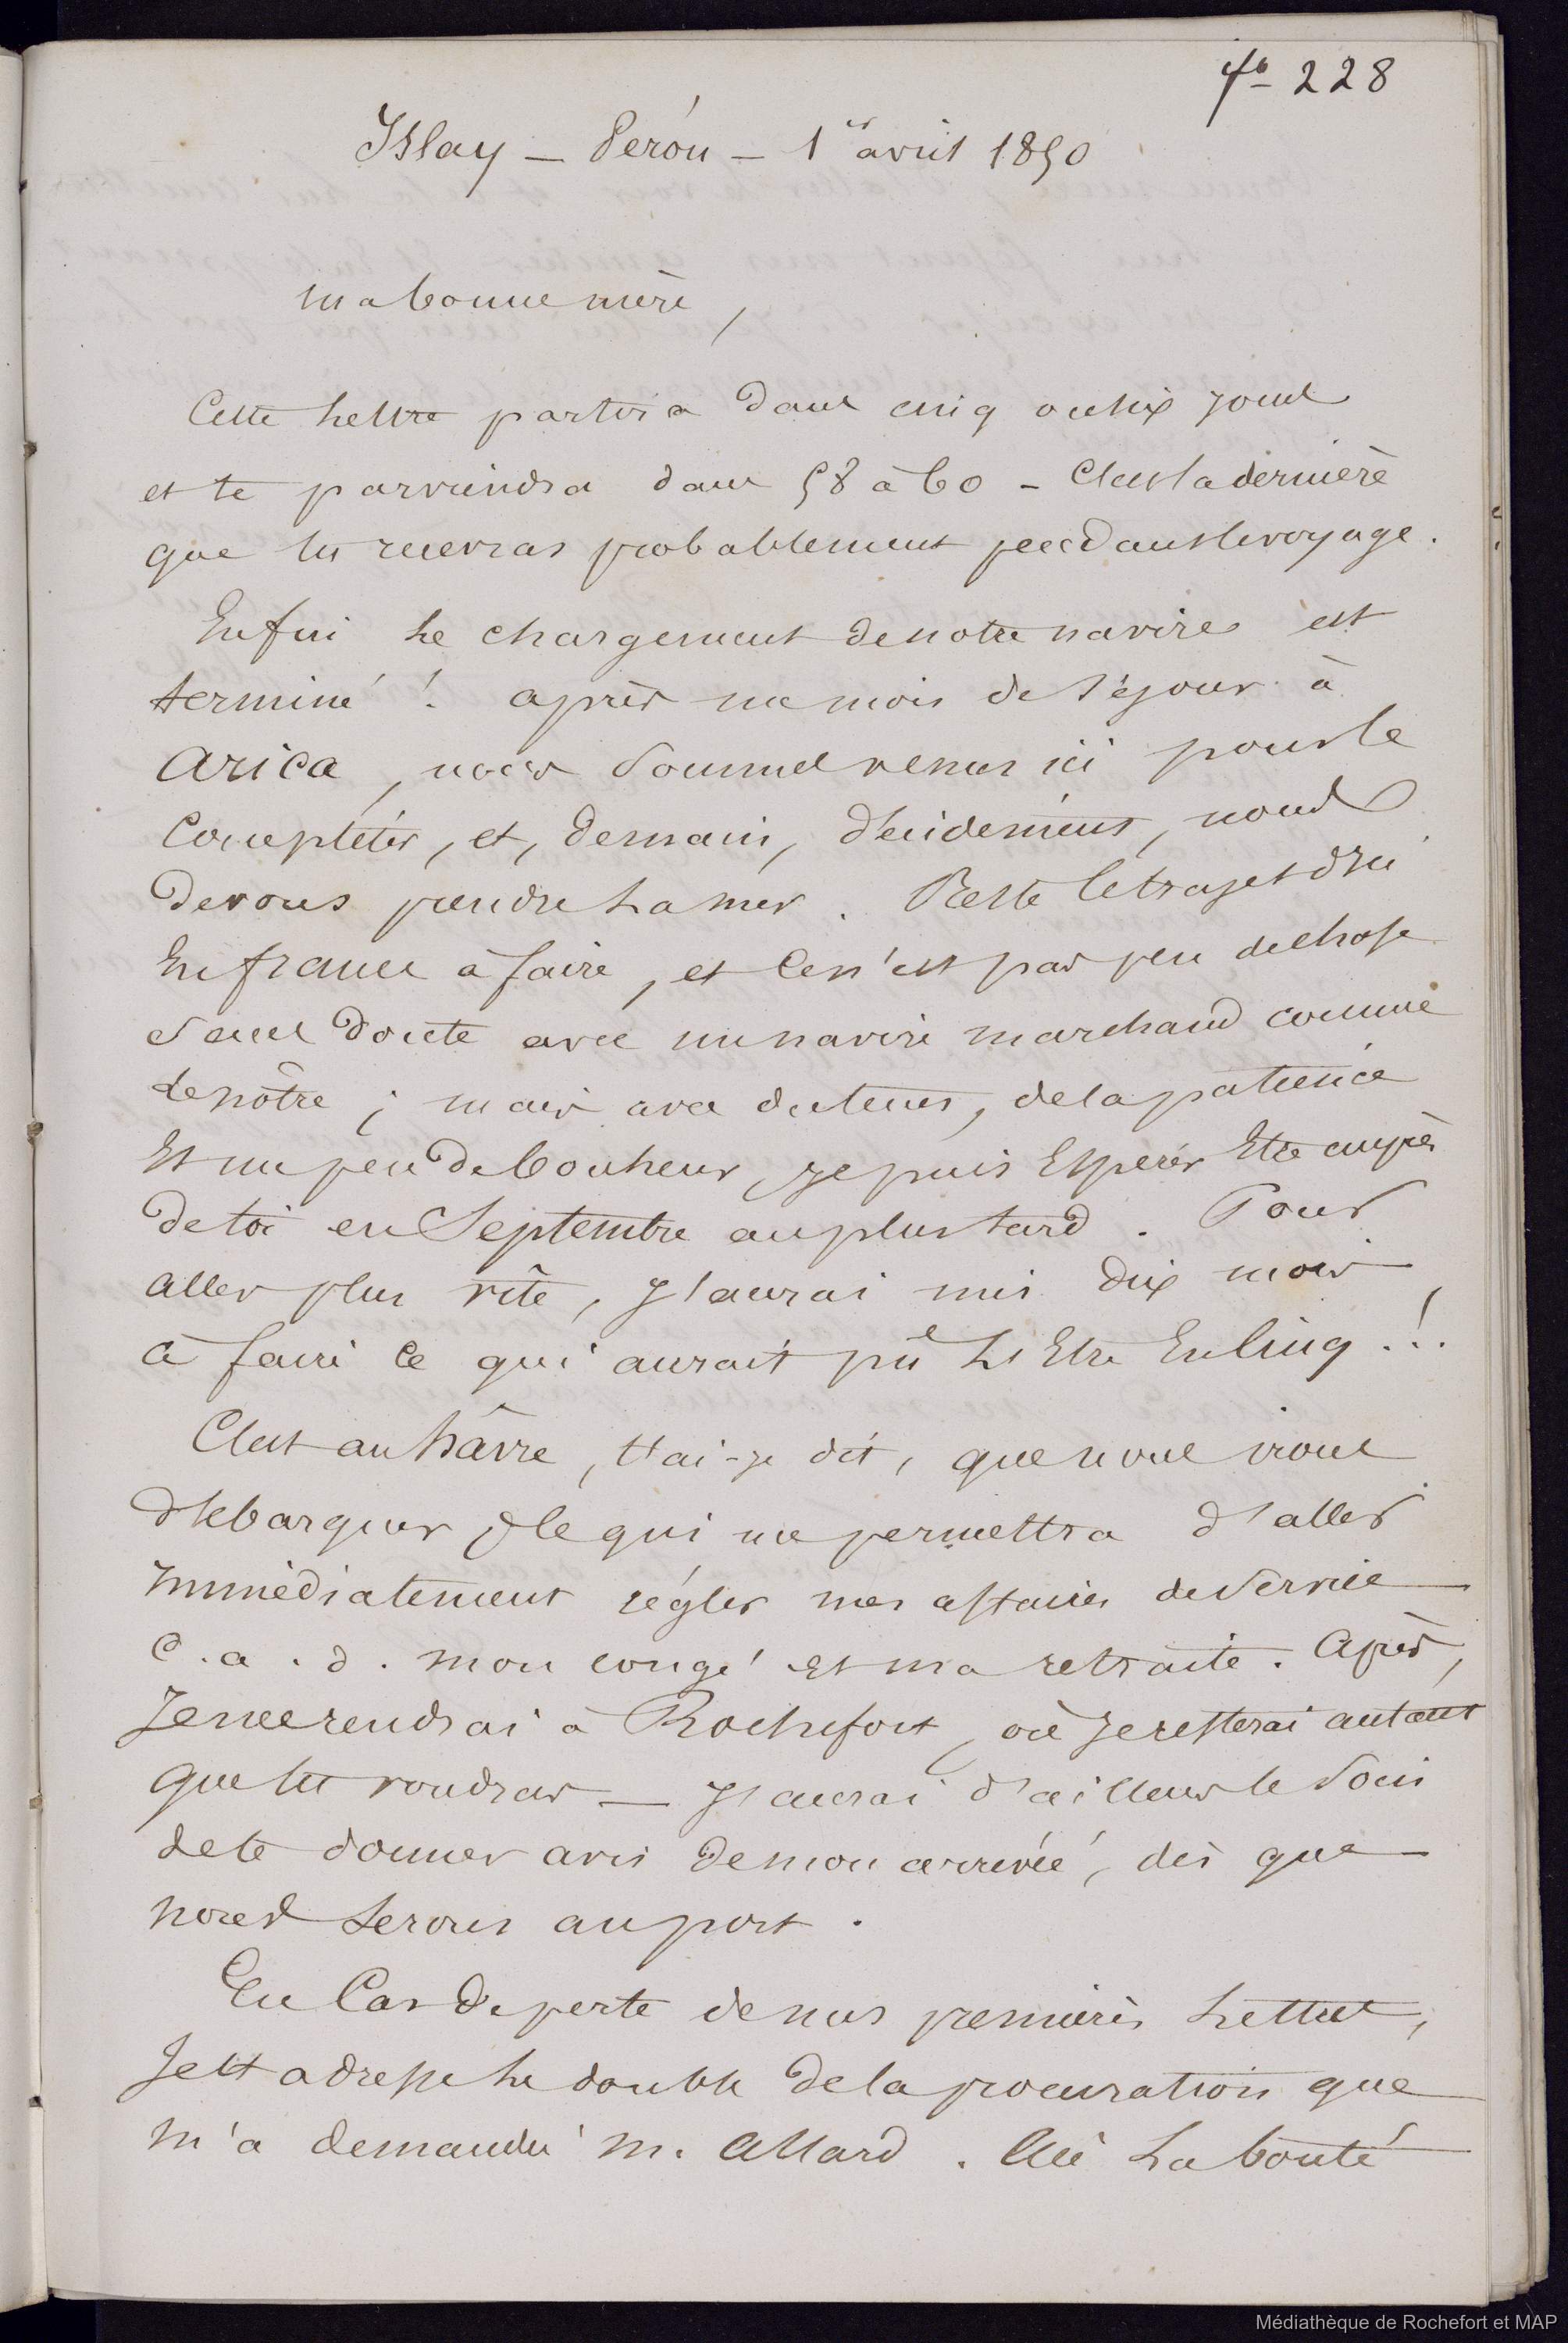 fo 228
Islay — Pérou — 1er avril 1850
ma bonne mère,
Cette lettre partira dans cinq ou six jours
et te parviendra dans 58 à 60 - C'est la dernière
que tu recevras probablement pendant le voyage.
Enfin le chargement de notre navire est
terminé ! après un mois de séjour à
Arica, nous sommes venus ici pour le
compléter, et, demain, décidément, nous
devons prendre la mer. Reste le trajet d'ici
En france à faire, et ce n'est pas peu de chose
sans doute avec un navire marchand comme
le nôtre ; mais avec du tems, de la patience
Et un peu de bonheur, je puis Espérer Etre auprès
de toi en Septembre au plus tard. Pour
aller plus vîte, J'aurai mis dix mois
à faire ce qui aurait pû l'Etre En cinq !..
C'est au hâvre, t'ai-je dit, que nous irons
débarquer, ce qui me permettra d'aller
Immédiatement régler mes affaires de service
C.a.d. mon congé et ma retraite. Après,
Je me rendrai à Rochefort, où Je resterai autant
que tu voudras — J'aurai d'ailleurs le soin
de te donner avis de mon arrivée, dès que
nous serons au port.
En Cas de perte de mes premières lettres,
Je t'adresse le double de la procuration que
m'a demandée M. Allard. Aie la bonté
Médiathèque de Rochefort et MAP